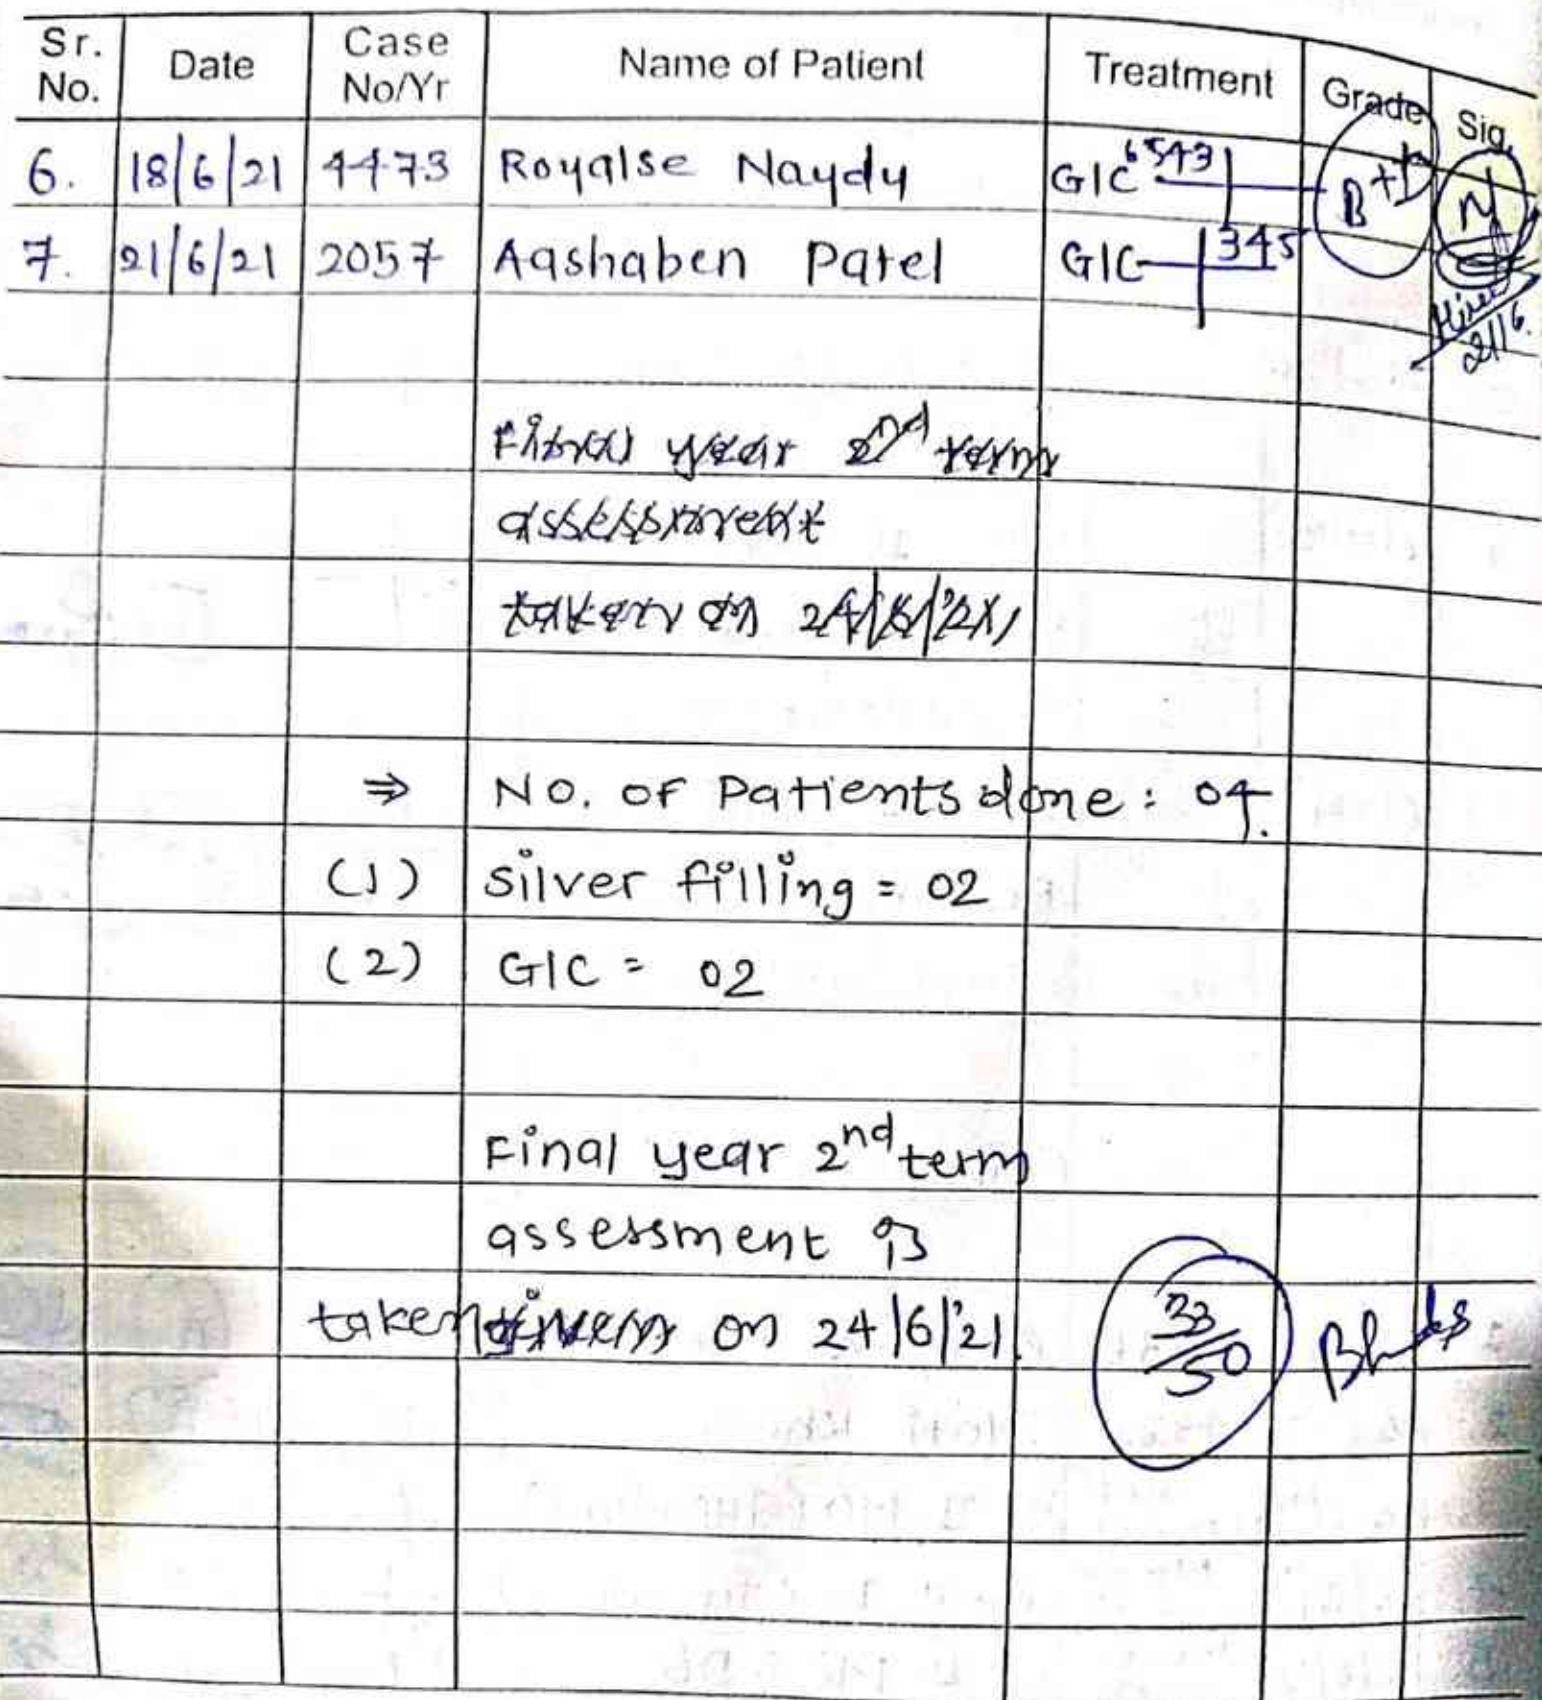 Sr. No. Date Case No/Yr Name of Patient Treatment Grade Sig.
6. 18/6/21 4473 Royalse Naydu GIC 6543 B+
7. 21/6/21 2057 Aashaben Patel GIC 345
21/6.
Final year 2nd term
assessment
taken on 24/6/'21
⇒ No. of Patients done : 04.
(1) Silver filling = 02
(2) GIC = 02
Final year 2nd term
assessment is
taken on 24/6/'21.
33/50